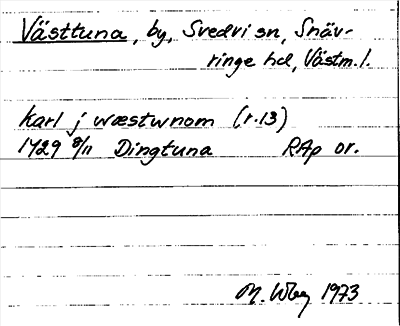 Västtuna, by, Svedvi sn, Snäv-
ringe hd, Västm. l.
Karl j wæstwnom (r. 13)
1429 8/11 Dingtuna RAp or.
M. Wbg 1973